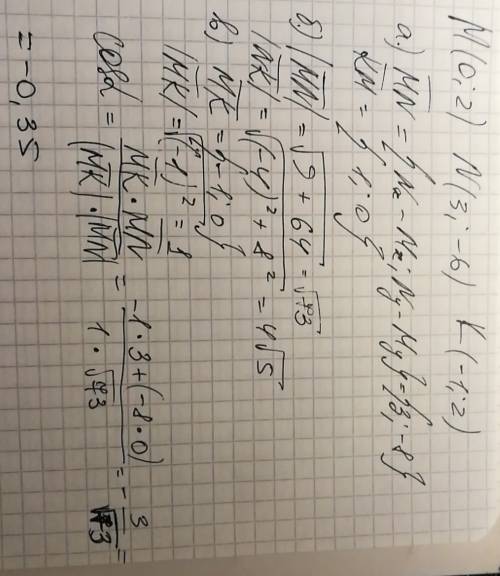 M(0; 2) N(3; -6) K(-1; 2)
а.) MN = {Nx - Mx; Ny - My} = {3; -8}
KM = {1; 0}
б.) |MN| = √9 + 64 = √73
|NK| = √(-4)² + 8² = 4√5
в) MK = {-1; 0}
|MK| = √(-1)² = 1
Cosα = MK · MN / |MK| · |MN| = -1 · 3 + (-8 · 0) / 1 · √73 = - 3 / √73 =
= -0,35